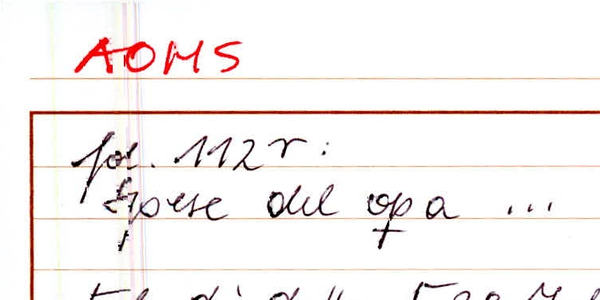 AOMS
fol. 112r:
Spese del opa ...